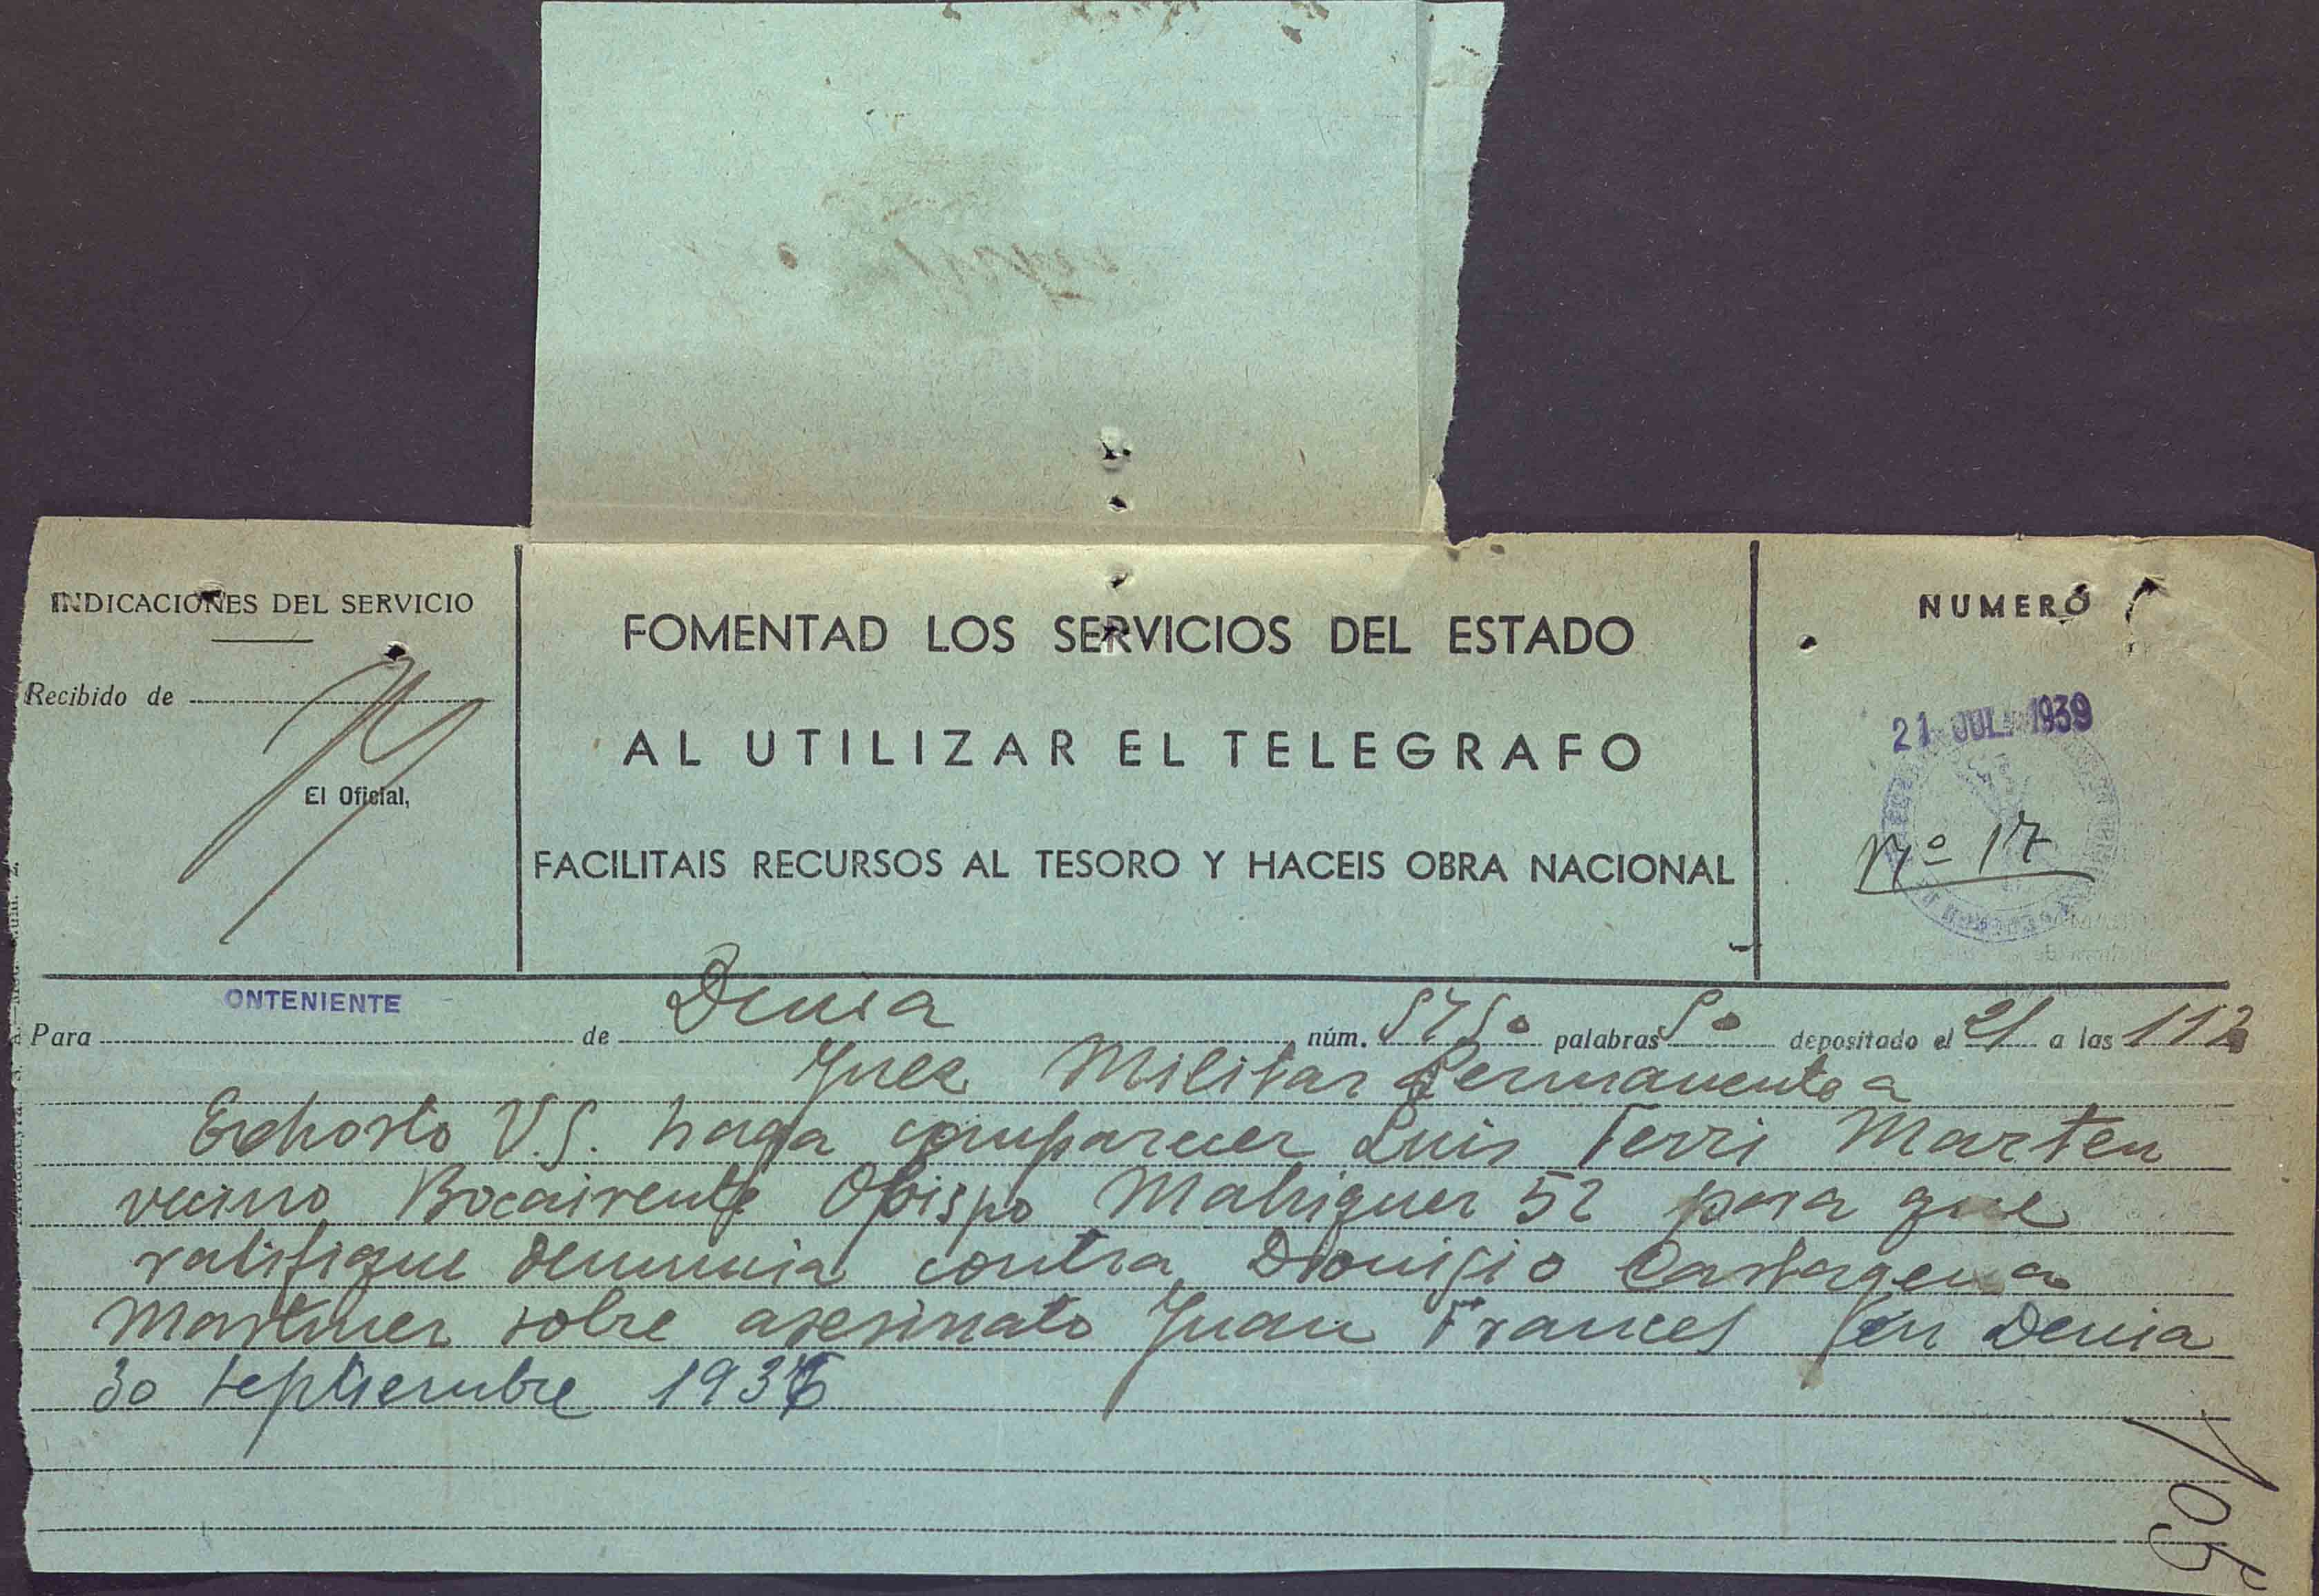 INDICACIONES DEL SERVICIO
Recibido de
El Oficial,
FOMENTAD LOS SERVICIOS DEL ESTADO
AL UTILIZAR EL TELEGRAFO
FACILITAIS RECURSOS AL TESORO Y HACEIS OBRA NACIONAL
NUMERO
21 JUL. 1939
Nº 17
Para ONTENIENTE de Denia núm. 5750 palabras 50 depositado el 21 a las 112
Juez Militar Permanente a
Exhorto V.S. haga comparecer Luis Ferri Marten
vecino Bocairente Obispo Mahiques 52 para que
ratifique denuncia contra Dionisio Cartagena
Martinez sobre asesinato Juan Frances en Denia
30 septiembre 1936